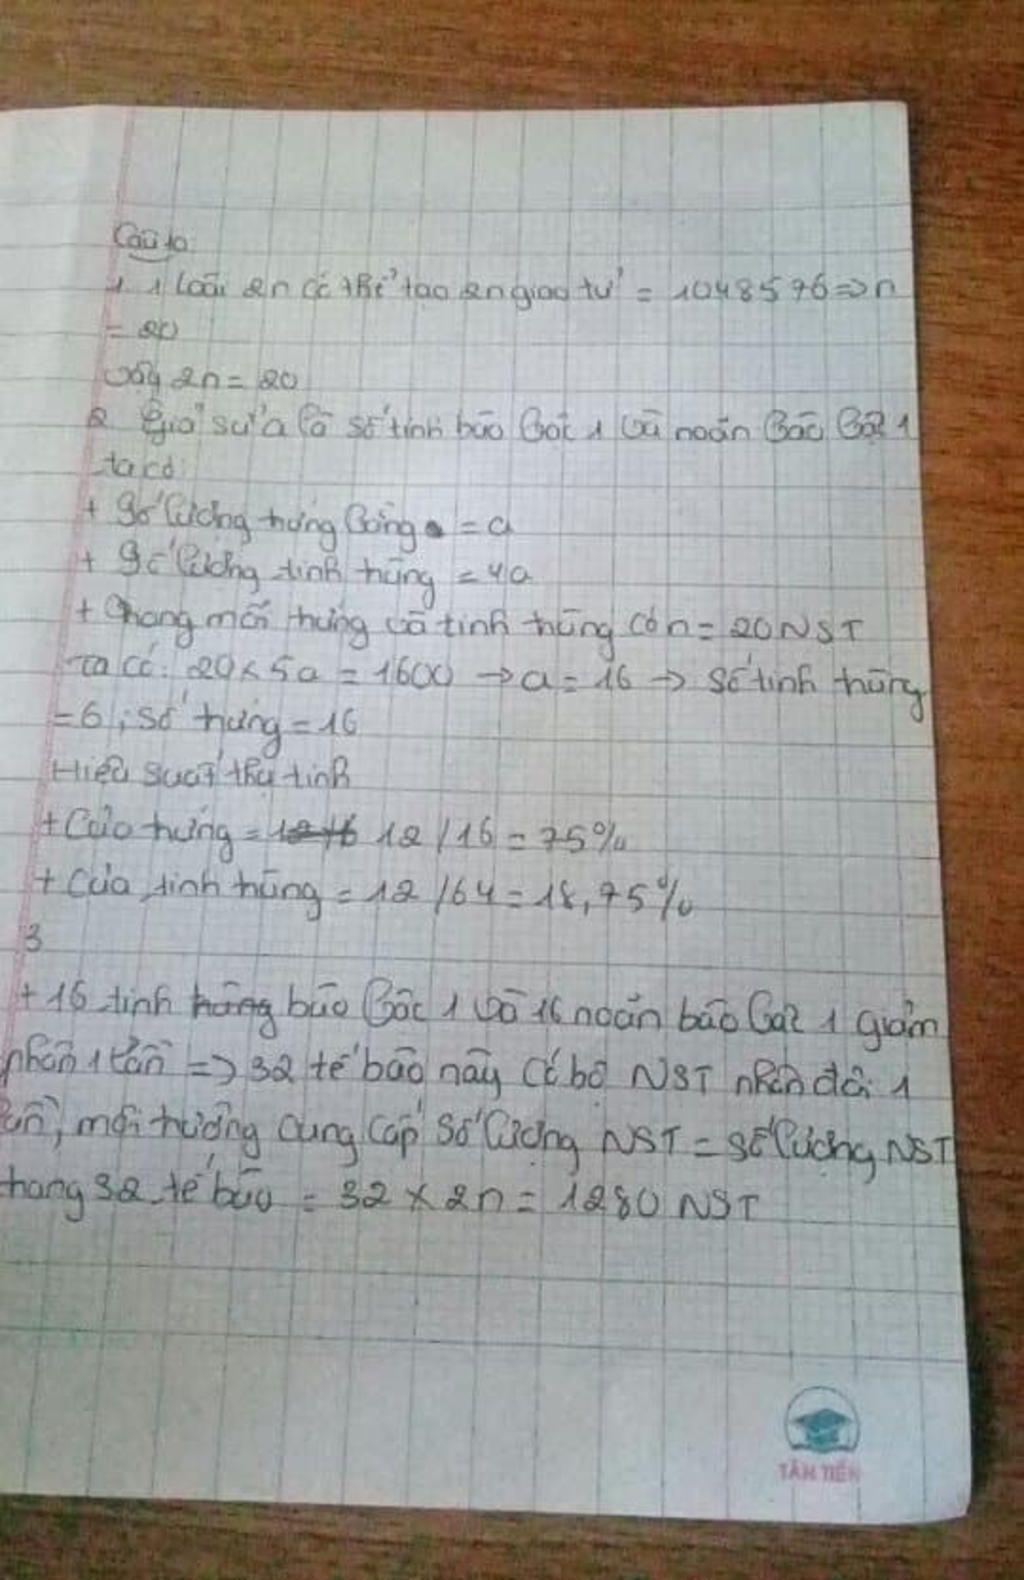 Câu 10:
1. 1 loài 2n có thể tạo 2n giao tử = 1048576 => n
= 20
Vậy 2n = 20
2 Giả sử a là số tinh bào bậc 1 và noãn bào bậc 1
ta có:
+ Số lượng trứng bằng = a
+ Số lượng tinh trùng = 4a
+ Trong mỗi trứng và tinh trùng có n = 20 NST
Ta có: 20 x 5a = 1600 → a = 16 → số tinh trùng
= 6, số trứng = 16
Hiệu suất thụ tinh
+ Của trứng = 12/16 = 75%
+ Của tinh trùng = 12/64 = 18,75%
3
+ 16 tinh bào bậc 1 và 16 noãn bào bậc 1 giảm
phân 1 lần => 32 tế bào này có bộ NST nhân đôi 1
lần, môi trường cung cấp số lượng NST = số lượng NST
trong 32 tế bào = 32 x 2n = 1280 NST
TÂN TIẾN